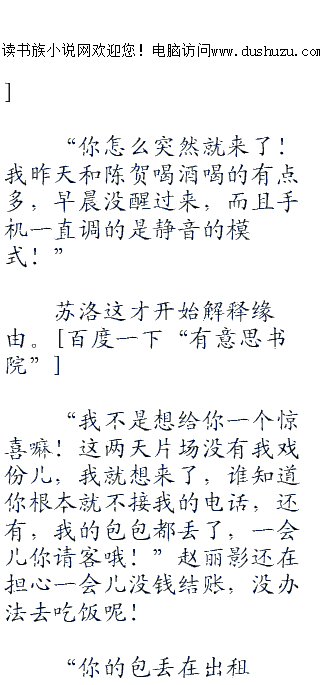 读书族小说网欢迎您！电脑访问www.dushuzu.com
]
“你怎么突然就来了！
我昨天和陈贺喝酒喝的有点
多，早晨没醒过来，而且手
机一直调的是静音的模
式！”
苏洛这才开始解释缘
由。[百度一下“有意思书
院”]
“我不是想给你一个惊
喜嘛！这两天片场没有我戏
份儿，我就想来了，谁知道
你根本就不接我的电话，还
有，我的包包都丢了，一会
儿你请客哦！”赵丽影还在
担心一会儿没钱结账，没办
法去吃饭呢！
“你的包丢在出租